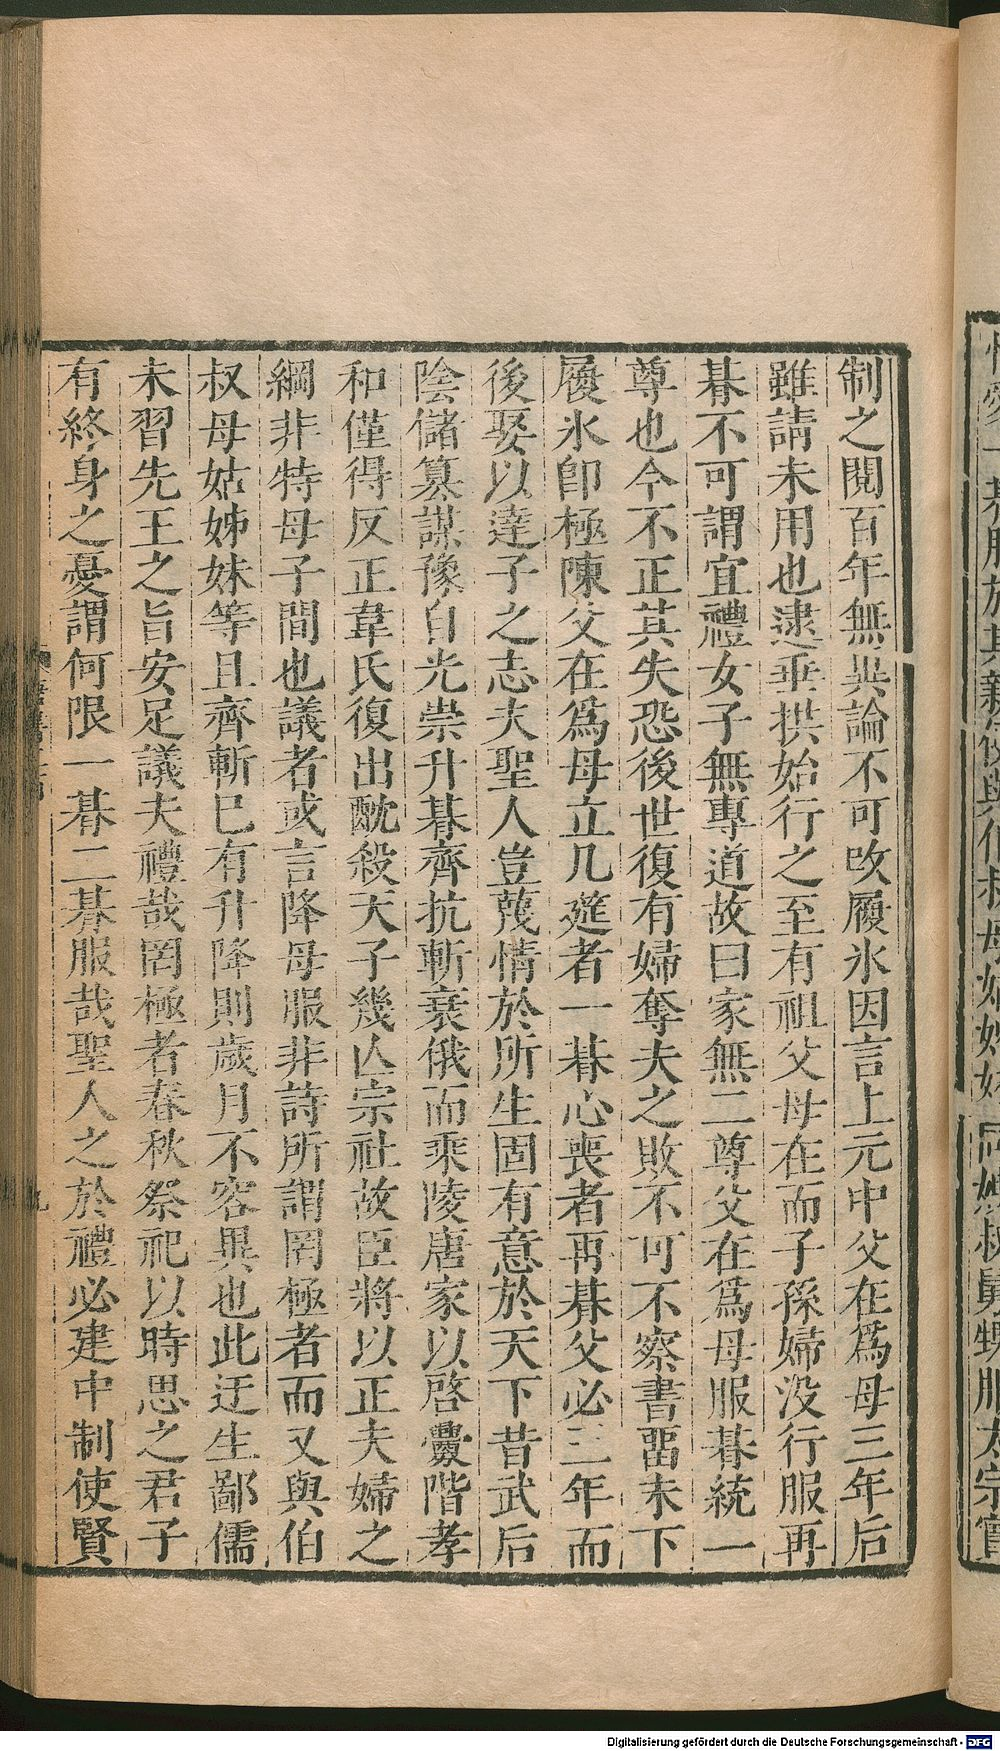 制之閱百年無異論不可改履氷因言上元中父在爲母三年后
雖請未用也逮垂拱始行之至有祖父母在而子孫婦没行服再
朞不可謂宜禮女子無專道故曰家無二尊父在爲母服朞統一
尊也今不正其失恐後世復有婦奪夫之敗不可不察書畱未下
履氷卽極陳父在爲母立几筵者一朞心喪者再朞父必三年而
後娶以達子之志夫聖人豈蔑情於所生固有意於天下昔武后
陰儲篡謀豫自光崇升朞齊抗斬衰俄而乘陵唐家以啓釁階孝
和僅得反正韋氏復出酖殺天子幾亾宗社故臣將以正夫婦之
綱非特母子間也議者或言降母服非詩所謂罔極者而又與伯
叔母姑姊妹等且齊斬巳有升降則歲月不容異也此迂生鄙儒
未習先王之旨安足議夫禮哉罔極者春秋祭祀以時思之君子
有終身之憂謂何限一朞二朞服哉聖人之於禮必建中制使賢
九
Digitalisierung gefördert durch die Deutsche Forschungsgemeinschaft - DFG